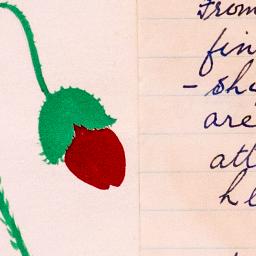 From
fin
- sh
are
att
he